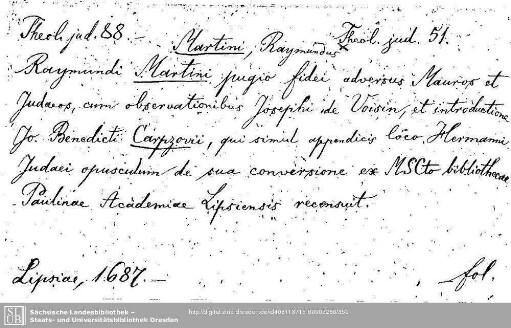 Theol. jud. 88 –
Martini, Raymundus
Theol. jud. 51.
Raymundi Martini pugio fidei adversus Mauros et
Judaeos, cum observationibus Josephi de Voisin, et introductione
Jo. Benedicti Carpzovii, qui simul appendicis loco Hermanni
Judaei opusculum de sua conversione ex MSCto bibliothecae
Paulinae Academiae Lipsiensis recensuit.
Lipsiae, 1687. –
fol.
SLUB
Sächsische Landesbibliothek –
Staats- und Universitätsbibliothek Dresden